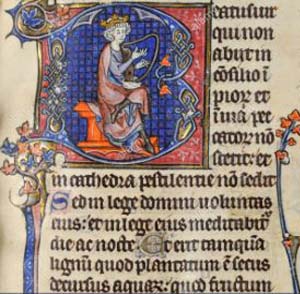 Beatus uir
qui non
abijt in
cōsilio ī
pioꝝ et
ī uia pec
catoꝝ nō
stetit: et
in cathedra pestilentie nō sedit
Sed in lege domini uoluntas
eius: et in lege eius meditabit᷑
die ac nocte. Et erit tamquā
lignum quod plantatum ē secus
decursus aquaꝝ: quod fructum